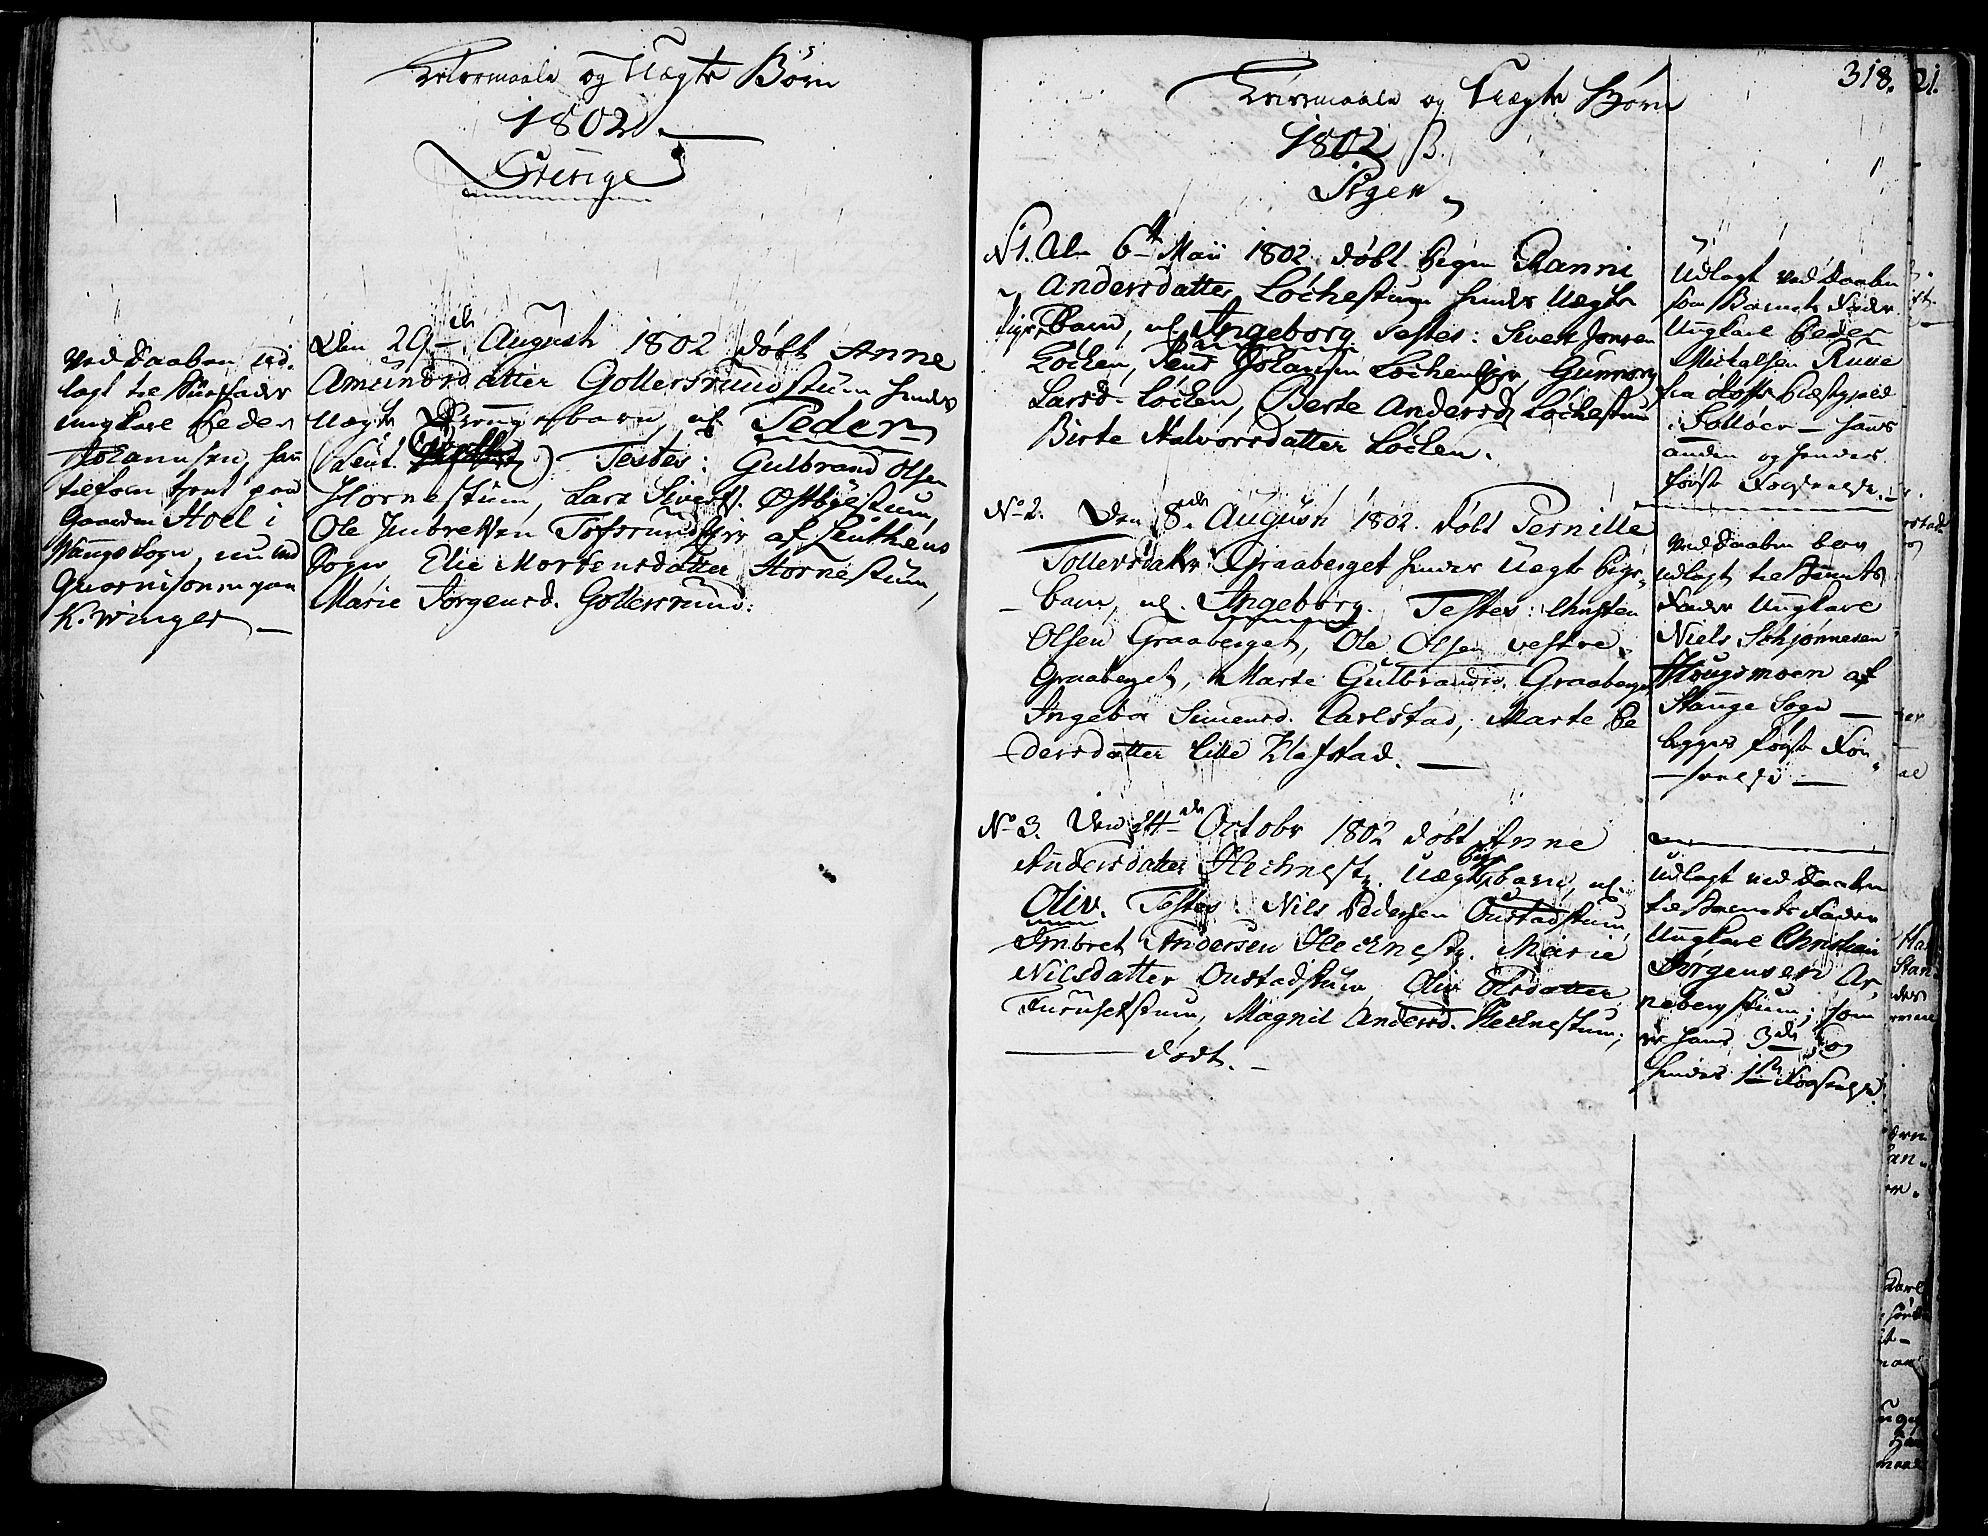 Leiermaale og Uægte Børn
1802.
Drenge
Ved Daaben ud-
lagt til Barnefader
ungkarl Peder
Johannesen, han
tilforn tient paa
Gaarden Hoel i
Wangs Sogn, nu ved
Guarnisonen paa
K. winger
Den 29de Augusti 1802 døbt Anne
Amundsdatter Gollersrudstuen hendes
Uægte Drengebarn, nl. Peder
(Leut. ) Testes: Gulbrand Olsen
Hornestuen, Lars Sivers. Østbyestuen,
Ole Imbretsen Tofsrud af Leuthens
Sogn Elie Mortensdatter Hornestuen,
Marie Jørgensd. Gollersrund.
318.
Leiermaale og Uægte Børn
1802 B.
Piger
N1. Den 6te Maii 1802 døbt Pigen Ranni
Andersdatter Løchestuen hendes Uægte
Pige Barn, nl. Ingeborg. Testes: Sivert Jonsen
Løchen, Jens Johansen Løcheneie, Gunnor
Larsd. Løchen, Berte Andersd. Løchestuen
Birte Halvorsdatter Løchen.
Udlagt ved Daaben
som Barnets Fader
Ungkarl Peder
Michelsen Ruue
fra Præstegield
i Solløer – hans
anden og hendes
første Forseelse.
No 2. Den 8de Augusti 1802. døbt Pernille
Tollersdatter Graaberget hendes Uægte Pige-
barn, nl. Ingeborg. Testes: Christen
Olsen Graaberget, Ole Olsen vestre
Graaberget, Marte Gulbrandsd. Graaberget
Ingebor Simensd. Carlstad, Marte Pe
dersdatter Lille Klafstad.
Ved Daaben blev
udlagt til Barnets
Fader Ungkarl
Niels Schjønnesen
Hougsmoen af
Stange Sogn
begges første For-
seelse
No 3. Den 24de Octobr 1802 døbt Anne
Andersdatter Hechnest. Uægte Pige barn, nl.
Oliv. Testes: Nils Pedersen Onstadstuen,
Imbret Andersen Hechnest. Marie
Nilsdatter Onstadstuen, Oliv Olsdatter
Furusetstuen, Magnil Andersd. Hechnestuen,
dødt.
Udlagt ved Daaben
til Barnets Fader
Ungkarl Christian
Jørgensen Ar-
nebergstuen, som
er hans 3de og
hendes 1te Forseelse